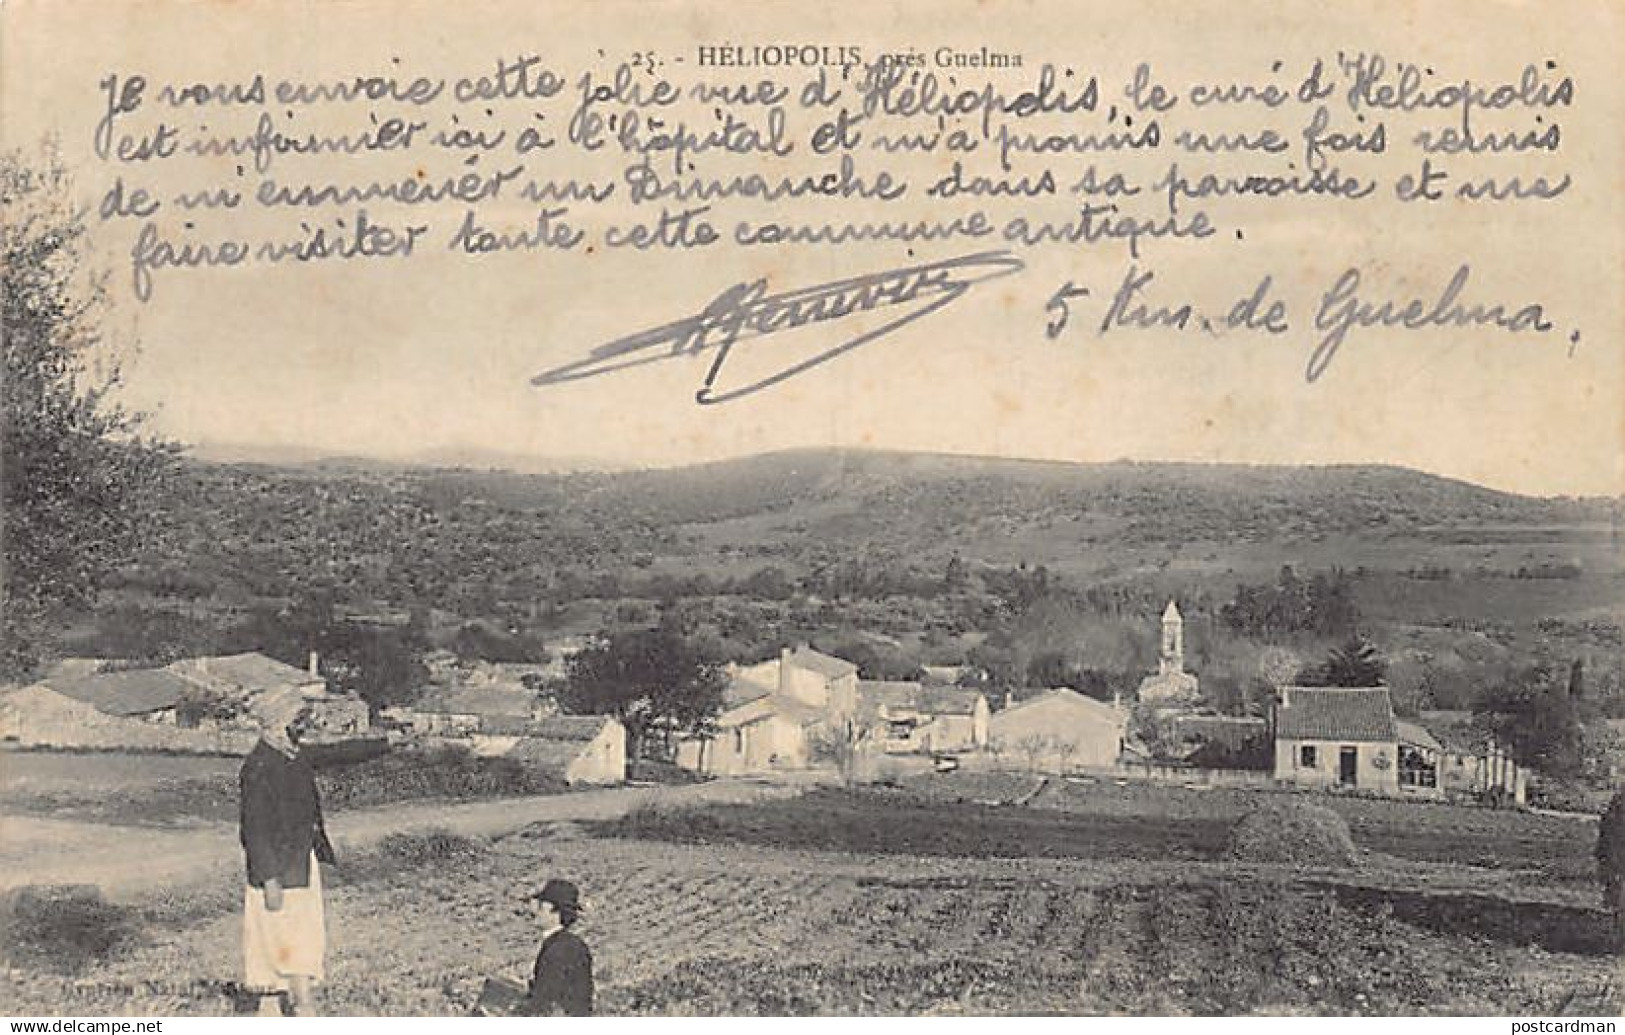 25. - HÉLIOPOLIS, près Guelma
Je vous envoie cette jolie vue d'Héliopolis, le curé d'Héliopolis
est infirmier ici à l'hôpital et m'a promis une fois remis
de m'emmener un Dimanche dans sa paroisse et me
faire visiter toute cette commune antique.
5 Km. de Guelma.
www.delcampe.net
postcardman